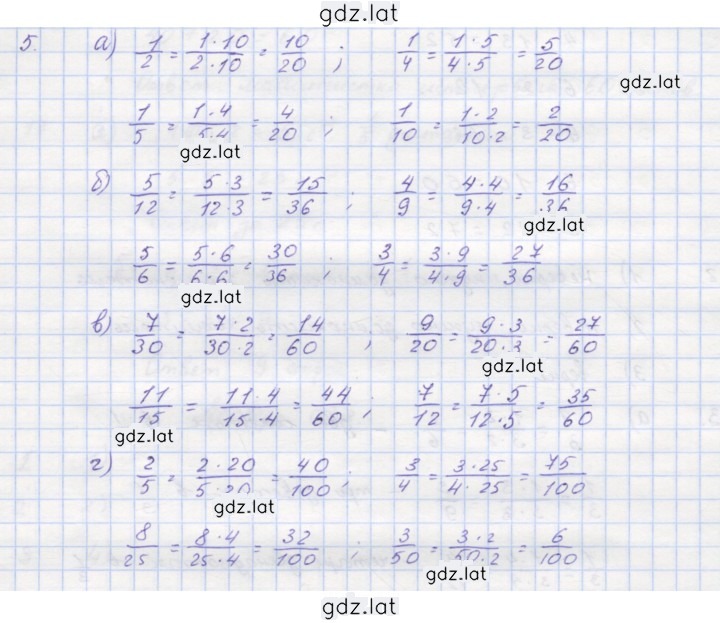 gdz.lat
5. а) 1/2 = 1·10/2·10 = 10/20 ; 1/4 = 1·5/4·5 = 5/20
gdz.lat
1/5 = 1·4/5·4 = 4/20 ; 1/10 = 1·2/10·2 = 2/20
gdz.lat
б) 5/12 = 5·3/12·3 = 15/36 ; 4/9 = 4·4/9·4 = 16/36
gdz.lat
5/6 = 5·6/6·6 = 30/36 ; 3/4 = 3·9/4·9 = 27/36
gdz.lat
в) 7/30 = 7·2/30·2 = 14/60 ; 9/20 = 9·3/20·3 = 27/60
gdz.lat
11/15 = 11·4/15·4 = 44/60 ; 7/12 = 7·5/12·5 = 35/60
gdz.lat
г) 2/5 = 2·20/5·20 = 40/100 ; 3/4 = 3·25/4·25 = 75/100
gdz.lat
8/25 = 8·4/25·4 = 32/100 ; 3/50 = 3·2/50·2 = 6/100
gdz.lat
gdz.lat